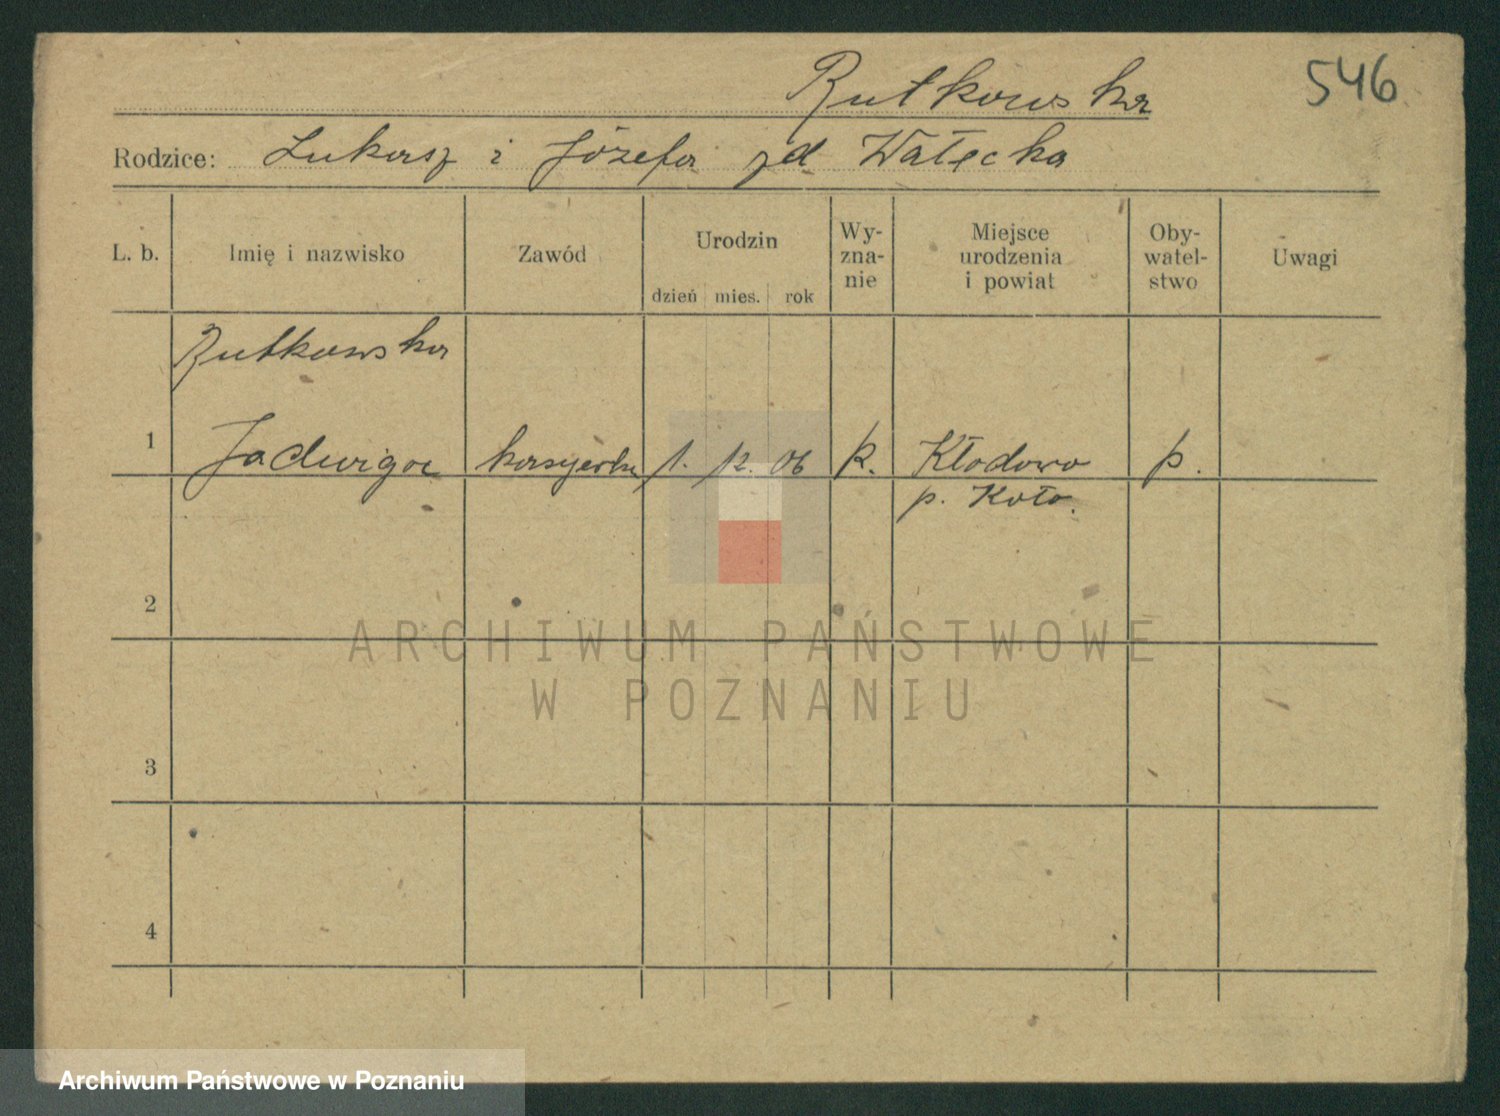 Rutkowska
546
Rodzice: Łukasz i Józefa zd Wałęcka
L. b. Imię i nazwisko Zawód Urodzin dzień mies. rok Wy-zna-nie Miejsce urodzenia i powiat Oby-watel-stwo Uwagi
Rutkowska
1 Jadwiga kasjerka 1. 12. 06 k. Kłodowa p.
p. Koło.
2
ARCHIWUM PAŃSTWOWE
W POZNANIU
3
4
Archiwum Państwowe w Poznaniu